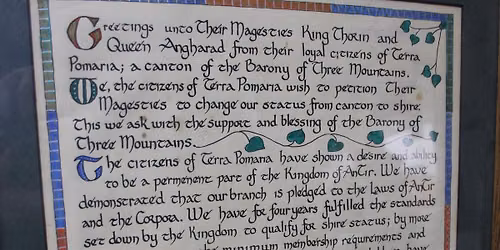 Greetings unto Their Magesties King Thorin and
Queen Angharad from their loyal citizens of Terra
Pomaria; a canton of the Barony of Three Mountains.
We, the citizens of Terra Pomaria wish to petition Their
Magesties to change our status from canton to shire.
This we ask with the support and blessing of the Barony of
Three Mountains.
The citizens of Terra Pomaria have shown a desire and ability
to be a permenent part of the Kingdom of AnTir. We have
demonstrated that our branch is pledged to the Laws of AnTir
and the Corpora. We have for four years fulfilled the standards
set down by the Kingdom to qualify for shire status; by more
the minimum membership requirements and
have